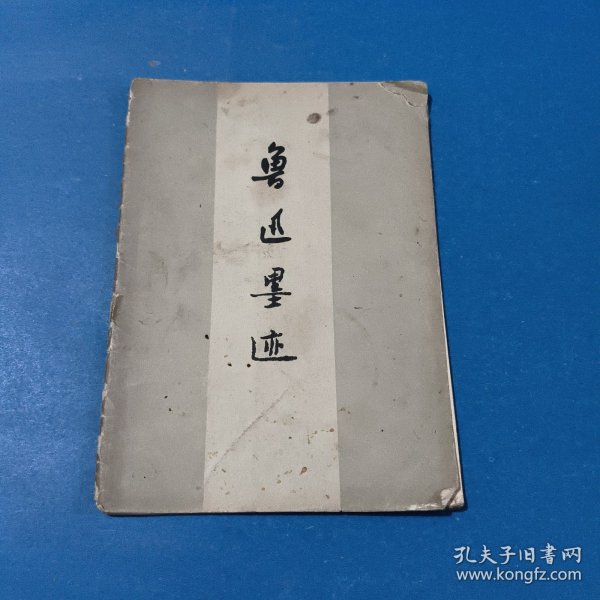 鲁迅墨迹
孔夫子旧書网
www.kongfz.com